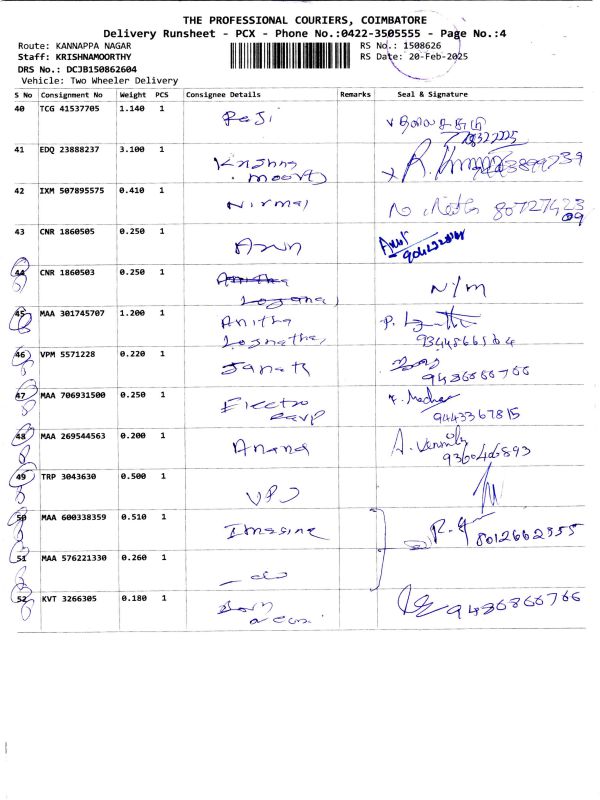 THE PROFESSIONAL COURIERS, COIMBATORE
Delivery Runsheet - PCX - Phone No.:0422-3505555 - Page No.:4
Route: KANNAPPA NAGAR RS No.: 1508626
Staff: KRISHNAMOORTHY RS Date: 20-Feb-2025
DRS No.: DCJB150862604
Vehicle: Two Wheeler Delivery
S No Consignment No Weight PCS Consignee Details Remarks Seal & Signature
40 TCG 41537705 1.140 1 Raji
41 EDQ 23888237 3.100 1 Krishna
moorthy
42 IXM 507895575 0.410 1 Nirmal 80727423
09
43 CNR 1860505 0.250 1 Arun
44 CNR 1860503 0.250 1 N/M
45 MAA 301745707 1.200 1 Anitha
Lognathan
46 VPM 5571228 0.220 1 Janath
47 MAA 706931500 0.250 1 Electro
9443367815
48 MAA 269544563 0.200 1 Anand
9360406893
49 TRP 3043630 0.500 1 UPS
50 MAA 600338359 0.510 1 Imagine
8012662355
51 MAA 576221330 0.260 1 - do
52 KVT 3266305 0.180 1 9486866766